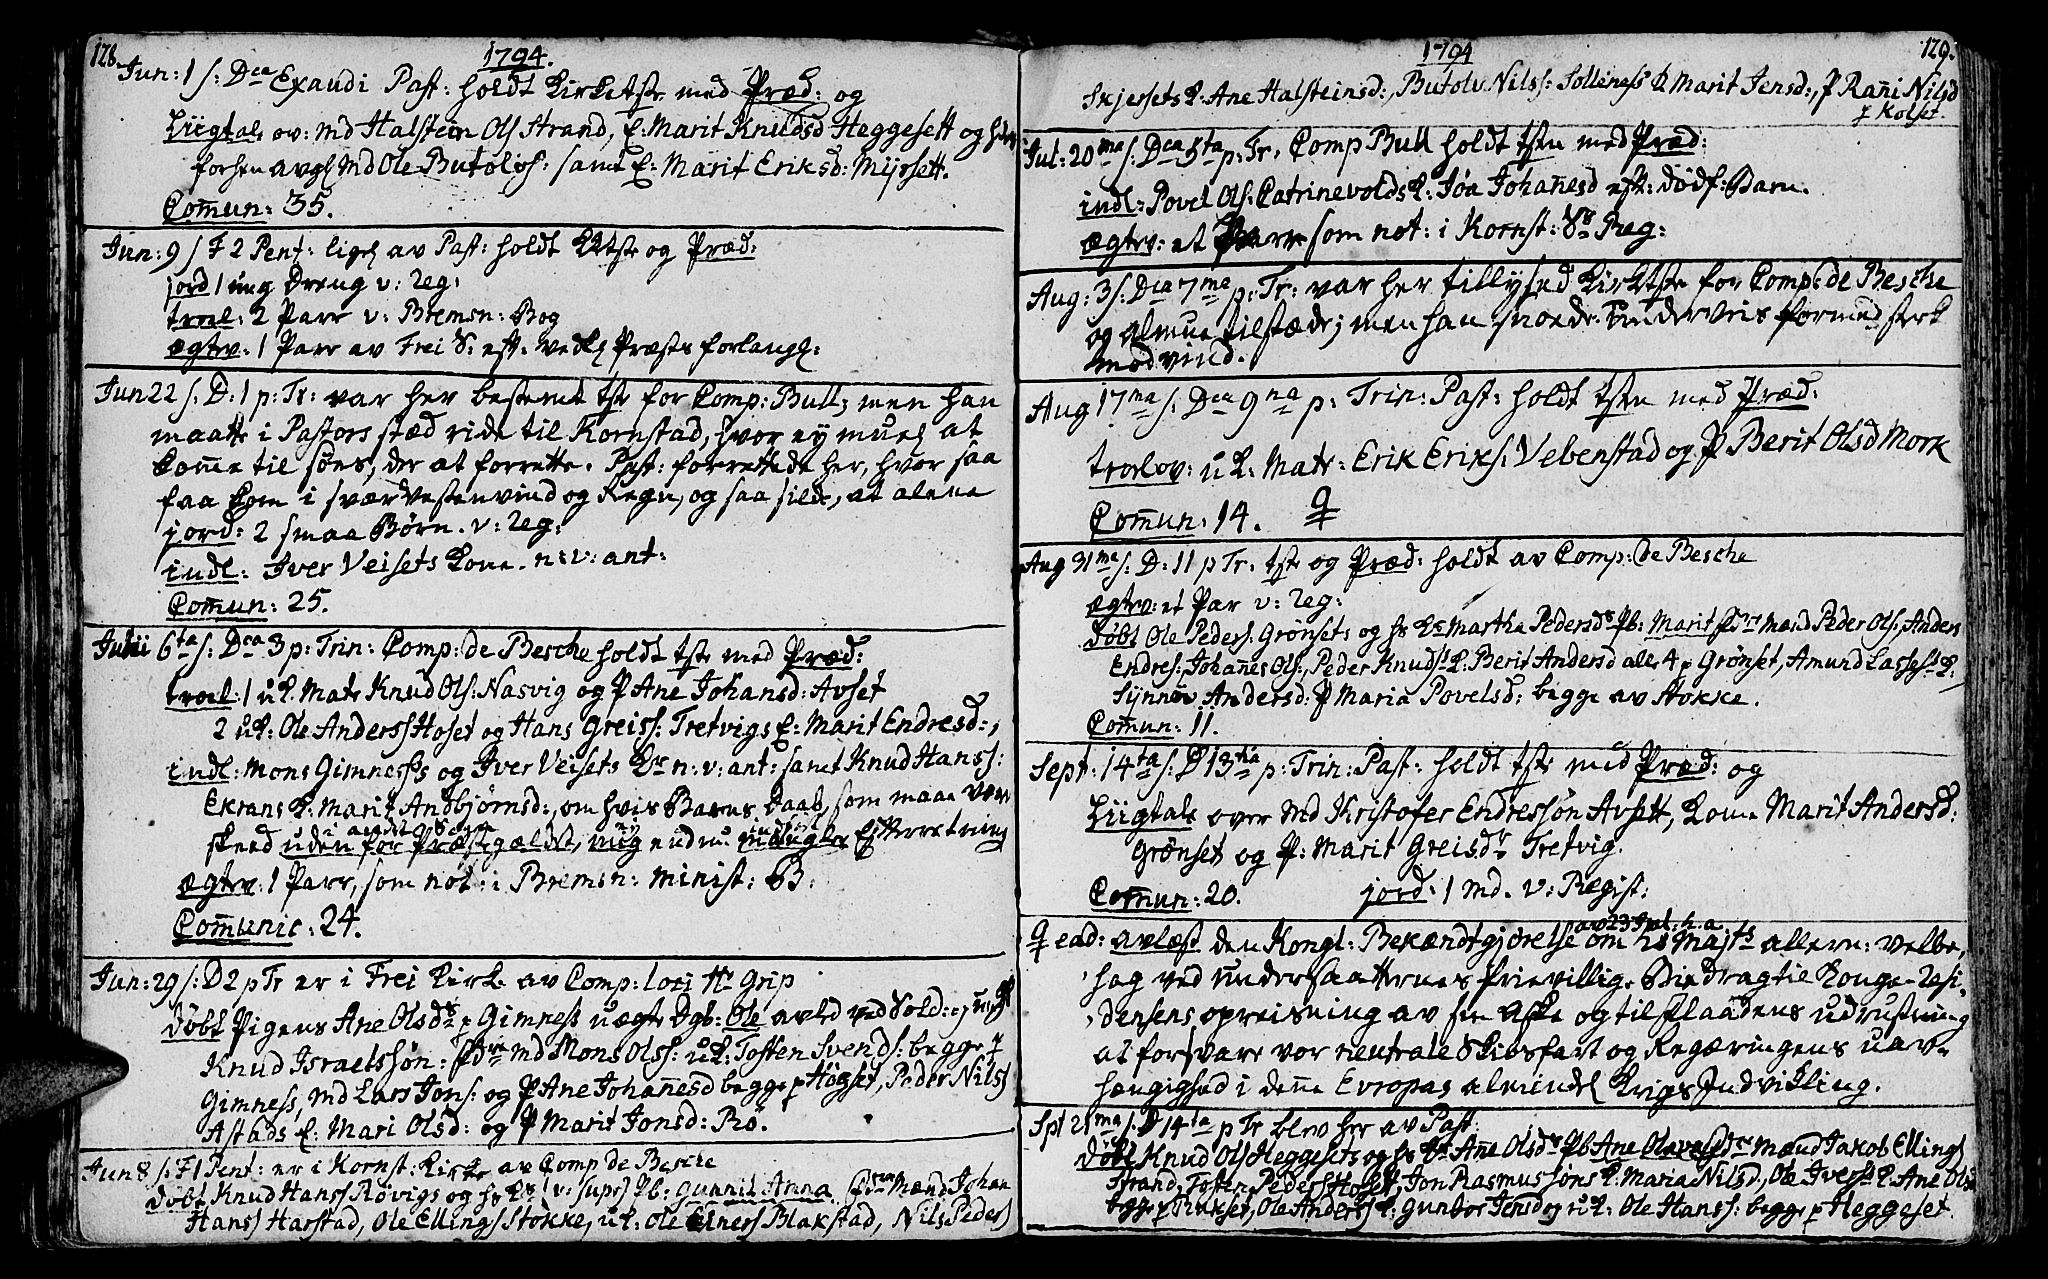 128.
1794.
Jun: 1 s: Dca Exaudi Past: holdt Kirketste med Præd: og
Liigtale ov: Md Halstein Ols Strand, E: Marit Knudsd Heggesett og
forhen avgl Md Ole Butolvs: samt E: Marit Eriksd: Myrsett.
Comun: 35.
Jun: 9 s F 2 Pent: ligel av Past: holdt tste og Præd:
jord 1 ung Dreng v: Reg:
trol: 2 Parr v: Bremsn: Bog
ægtev: 1 Parr av Frei S: eft: vedl Præsts forlangl:
Jun 22 s: D: 1 p: Tr: var her bestemt tste for Comp: Bull; men han
maatte i Pastors stæd ride til Kornstad, hvor ey muel at
komme til søes, der at forrette. Past: forrettede her, hvor saa
faa kom i svær Vestenvind og Regn, og saa silde, at alene
jord: 2 smaa Børn. v: Reg:
indl: Iver Veisets Kone. n: v: ant:
Comun: 25.
Julii 6ta s: Dca 3 p: Trin: Comp: de Besche holdt tste med Præd:
trol: 1 u K: Matr Knud Ols: Nasvig og P Ane Johansd: Avset
2 u K: Ole Anderss Hoset og Hans Greiss: Tretvigs E: Marit Endresd:,
indl: Mons Gimness's og Iver Veisets Kr n: v: ant: samt Knud Hanss:
Ekrans K: Marit Andbjørnsd:, om hvis Barns Daab, som maae være
skeed uden for Præstegældet, mig endnu mangler Efterretning
ægtev: 1 Parr, som not: i Bremsn: minist: B:
Communic: 24.
Jun: 29 s: D 2 p Tr er i Frei Kirke av Comp: loci Hr Grip
døbt Pigens Ane Olsdr p Gimness uægte Dgb: Ole avled ved Sold: og ungk
Knud Israelssøn: Fdre Md Mons Olss: u K: Tosten Svends: begge p
Gimness, Md Lars Jons: og P Ane Johannesd begge p Høgset, Peder Nilss
Astads E: Mari Olsd: og P Marit Jonsd: Rø.
Jun 8 s: F 1 Pent: er i Kornst: Kirke av Comp de Besche
døbt Knud Hanss Røvigs og hs Ks (v: supr) Pb: Gunnil Anna Fdre Mænd Johan
Hanss Harstad, Ole Ellings Stokke, u K: Ole Elness Blakstad, Nils Peders
1794
129.
Skjersets K: Ane Halsteinsd:, Butolv Nilss: Solleness K Marit Jensd:, P Rani Nilsd
p Kolset.
Jul: 20ma s: Dca 5ta p: Tr, Comp Bull holdt tsten med Præd:
indl: Povel Ols: Catrinevolds K: Jøa Johannesd eft: dødf: Barn.
ægtev: et Parr som not: i Kornst: Reg:
Aug: 3 s: Dca 7ma p: Tr: var her tillyset Kirktste for Comp: de Besche
og Almue tilstæde; men han snoede underveis formed stærk
modvind.
Aug 17ma s: Dca 9na p: Trin: Past: holdt tsten med Præd:
trolov: u K: Matr: Erik Eriks: Vebenstad og P Berit Olsd Mork
Comun: 14.
Aug 31ma s: D: 11 p Tr: tste og Præd: holdt av Comp: de Besche
ægtev: et Par v: Reg:
døbt Ole Peders: Grønsets og hs Ks Martha Pedersds Pb: Marit Fdre Mænd Peder Ols:, Anders
Endres: Johannes Ols:, Peder Knuds: K: Berit Andersd alle 4 p Grønset, Amund Lasses: K:
Synnøv Andersd: P Maria Povelsd: begge av Stokke.
Comun: 11.
Sept: 14ta s: D 13tia p: Trin: Past: holdt tste med Præd: og
Liigtale over Md Kristofer Endressøn Avsett, Kone Marit Andersd:
Grønset og P: Marit Greisdr Tretvig.
Comun: 20. jord: 1 Md. v: Regist:
av 23 Jul: h: a:
ead: avlæst den Kongl: Bekændtgjørelse om hs Majts allern: velbe-
hag ved Undersaatternes frievillige Bidrag til Konge-Resi-
densens opreisning av sin Aske og til Flaadens udrustning
at forsvare vor neutrale Skibsfart og Regæringens uav-
hængighed i denne Evropas almindel Krigs Indvikling.
Spt 21ma s: D 14ta p Tr blev her av Past:
døbt Knud Ols Heggesets og hs Ks Ane Olsdr Pb Ane Fdre Mænd Jakob Ellings
Strand, Tosten Peders Hoset, Jon Rasmussøns K: Maria Nilsd, Ole Ivers: K: Ane Olsd
begge p Rukset, Ole Anders K: Gunbor Jensd og u K: Ole Hanss: begge p Heggeset.